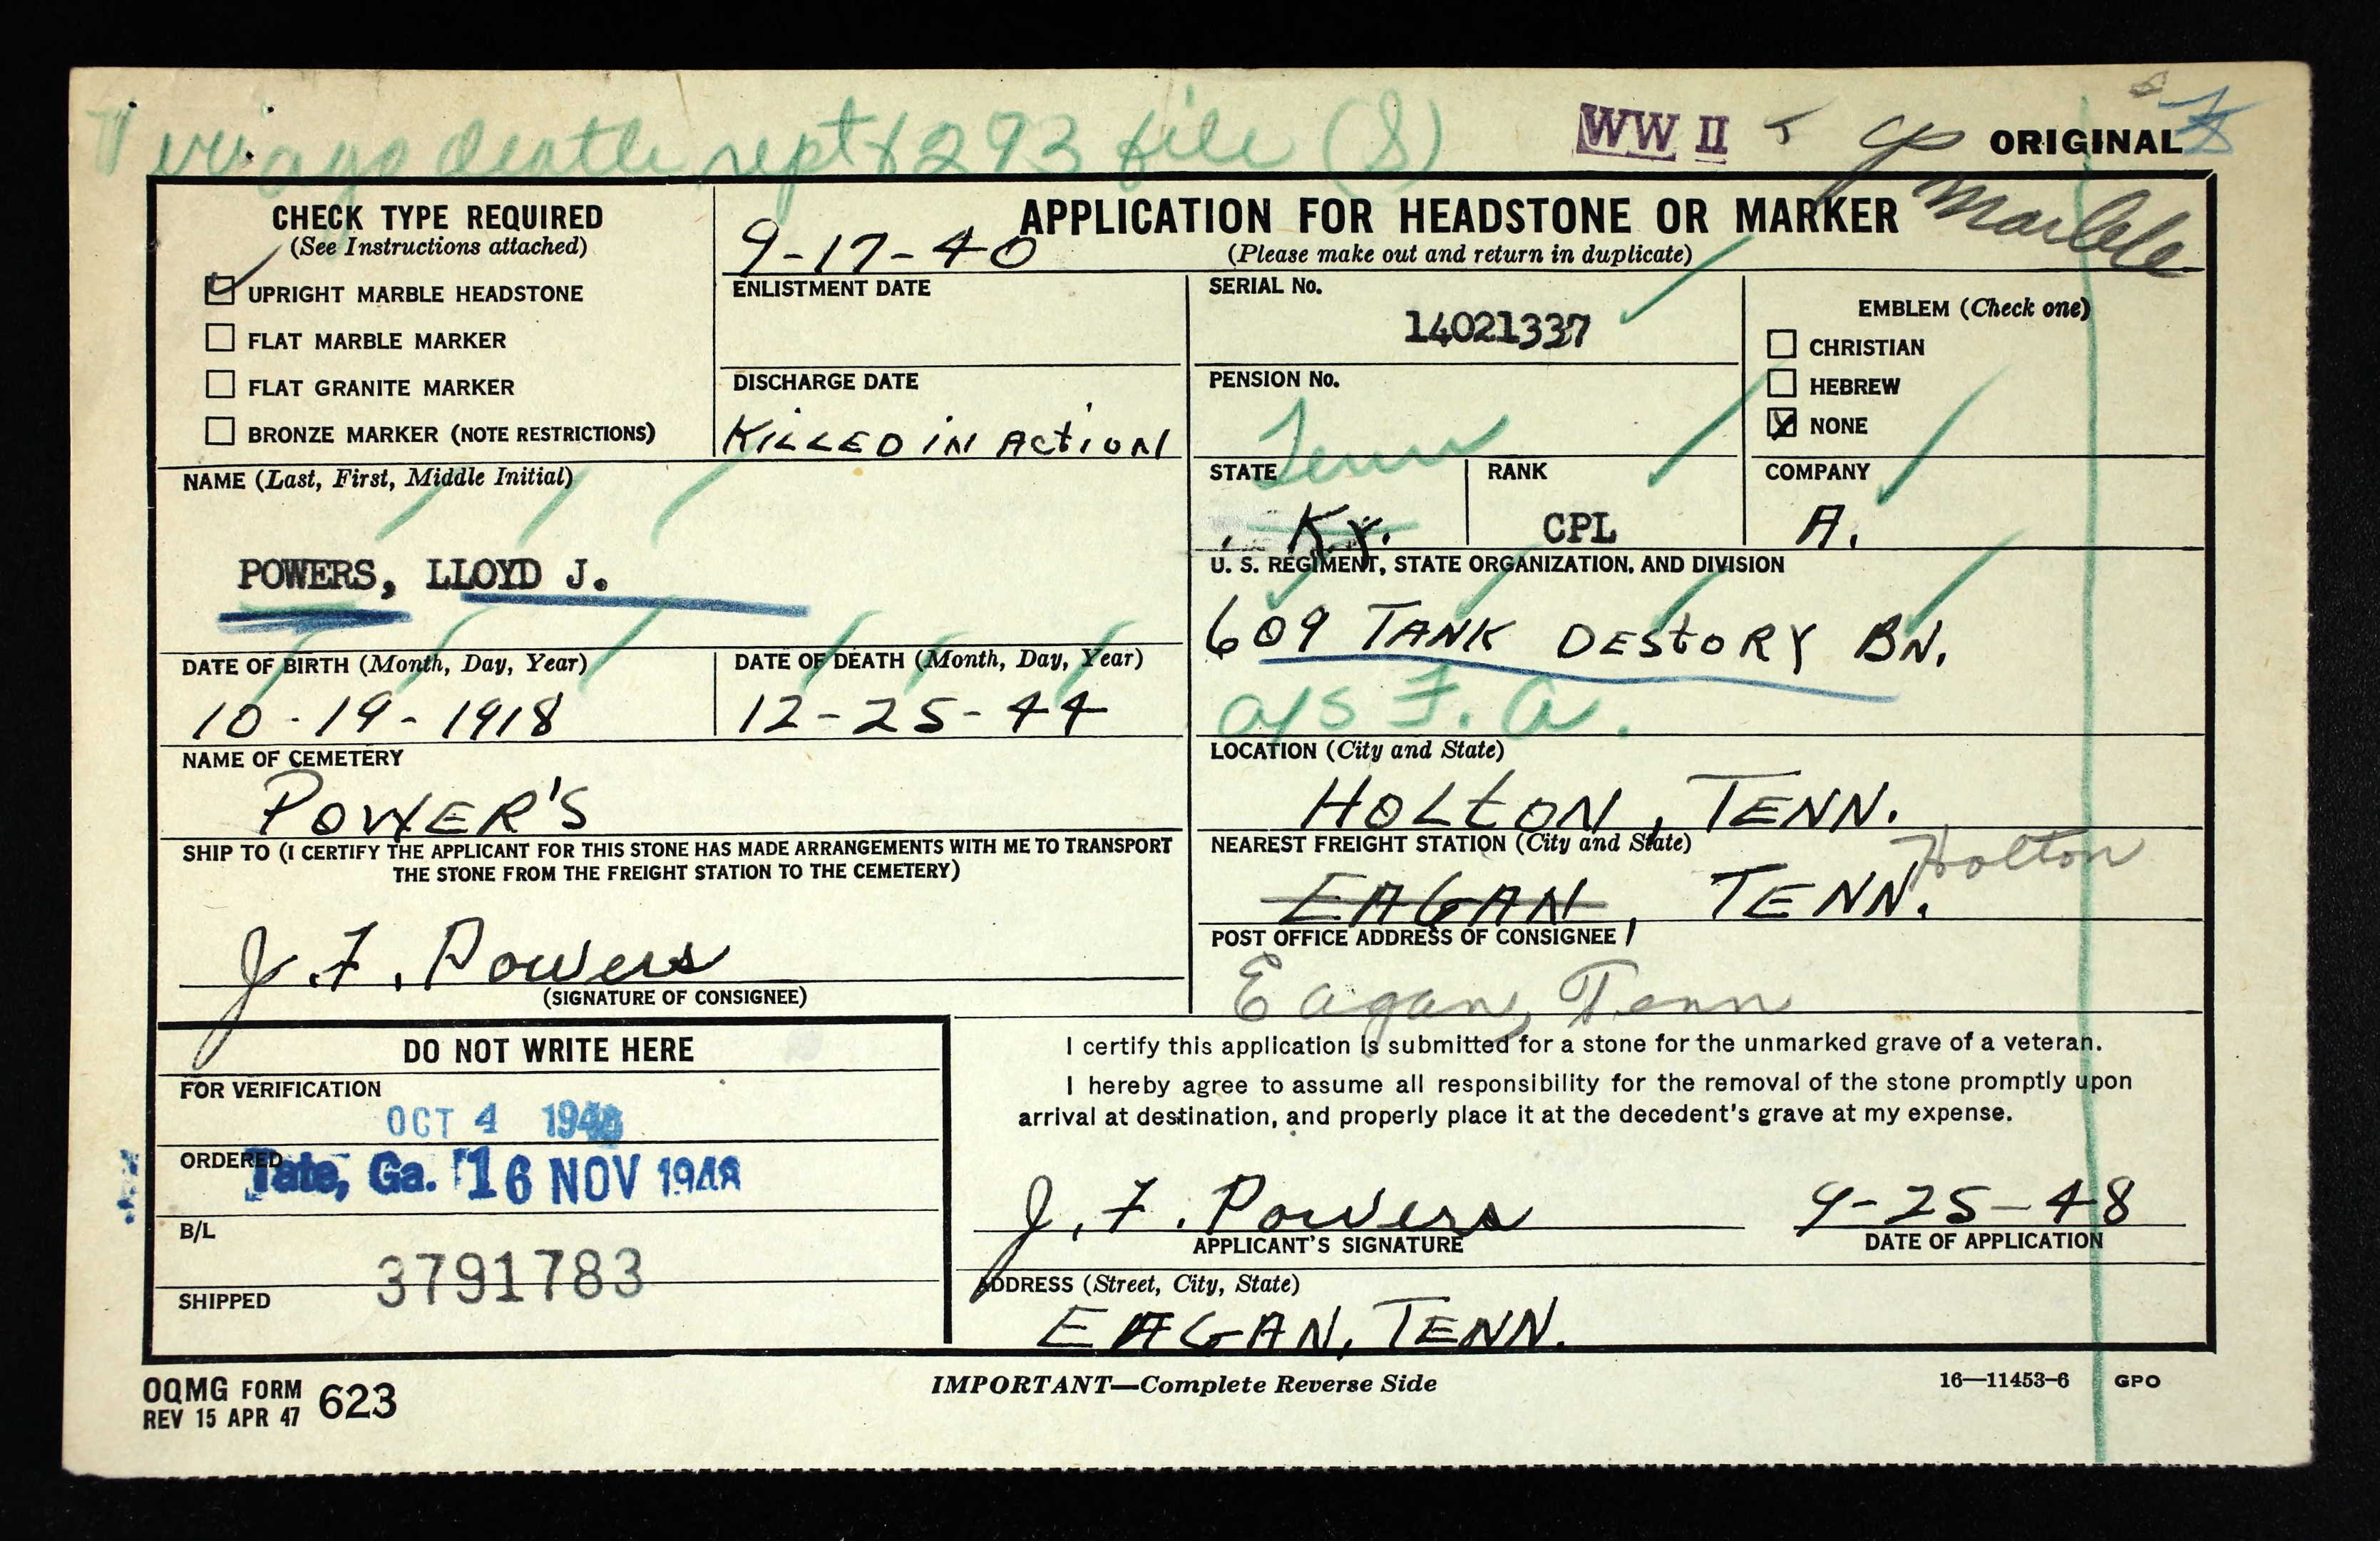 death rept & 293 file (S)
WW II
ORIGINAL
Marble
CHECK TYPE REQUIRED
(See Instructions attached)
UPRIGHT MARBLE HEADSTONE
FLAT MARBLE MARKER
FLAT GRANITE MARKER
BRONZE MARKER (NOTE RESTRICTIONS)
9-17-40
ENLISTMENT DATE
DISCHARGE DATE
KILLED IN ACtION
APPLICATION FOR HEADSTONE OR MARKER
(Please make out and return in duplicate)
SERIAL No.
14021337
PENSION No.
EMBLEM (Check one)
CHRISTIAN
HEBREW
NONE
NAME (Last, First, Middle Initial)
POWERS, LLOYD J.
Tenn
STATE
Ky.
RANK
CPL
COMPANY
A.
U. S. REGIMENT, STATE ORGANIZATION, AND DIVISION
609 TANK DEStORY BN.
a/s F. A.
DATE OF BIRTH (Month, Day, Year)
10-19-1918
DATE OF DEATH (Month, Day, Year)
12-25-44
NAME OF CEMETERY
POWER'S
LOCATION (City and State)
HOLtON, TENN.
SHIP TO (I CERTIFY THE APPLICANT FOR THIS STONE HAS MADE ARRANGEMENTS WITH ME TO TRANSPORT
THE STONE FROM THE FREIGHT STATION TO THE CEMETERY)
J. F. Powers
(SIGNATURE OF CONSIGNEE)
NEAREST FREIGHT STATION (City and State)
Holton
EAGAN, TENN.
POST OFFICE ADDRESS OF CONSIGNEE
Eagan, Tenn
DO NOT WRITE HERE
FOR VERIFICATION
OCT 4 1948
ORDERED
Tate, Ga. 16 NOV 1948
B/L
3791783
SHIPPED
I certify this application is submitted for a stone for the unmarked grave of a veteran.
I hereby agree to assume all responsibility for the removal of the stone promptly upon
arrival at destination, and properly place it at the decedent's grave at my expense.
J. F. Powers
9-25-48
APPLICANT'S SIGNATURE
DATE OF APPLICATION
ADDRESS (Street, City, State)
EAGAN, TENN.
OQMG FORM 623
REV 15 APR 47
IMPORTANT—Complete Reverse Side
16—11453-6 GPO